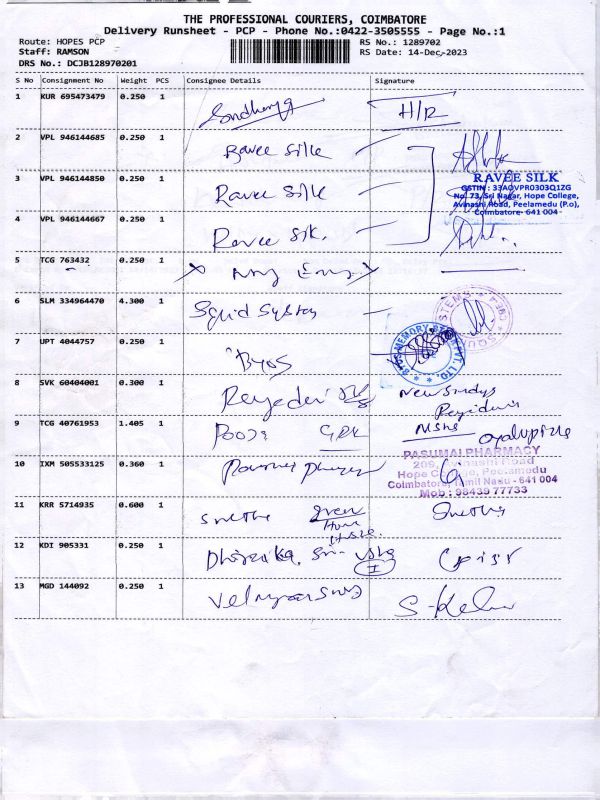 THE PROFESSIONAL COURIERS, COIMBATORE
Delivery Runsheet - PCP - Phone No.:0422-3505555 - Page No.:1
Route: HOPES PCP RS No.: 1289702
Staff: RAMSON RS Date: 14-Dec-2023
DRS No.: DCJB128970201
S No Consignment No Weight PCS Consignee Details Signature
1 KUR 695473479 0.250 1 H/R
2 VPL 946144685 0.250 1 Ravee silk
RAVEE SILK
3 VPL 946144850 0.250 1 Ravee silk
GSTIN : 33AOVPR0303Q1ZG
No. 73, Sri Nagar, Hope College,
Avinashi Road, Peelamedu (P.o),
Coimbatore- 641 004
4 VPL 946144667 0.250 1 Ravee Sik.
5 TCG 763432 0.250 1
6 SLM 334964470 4.300 1 Squid System
7 UPT 4044757 0.250 1 Byos
8 SVK 60404001 0.300 1
9 TCG 40761953 1.405 1 Pooja GRK
PASUMAI PHARMACY
10 IXM 505533125 0.360 1
209, Avinashi Road
Hope College, Peelamedu
Coimbatore, Tamil Nadu - 641 004
Mob : 98439 77733
11 KRR 5714935 0.600 1 Snetha
12 KDI 905331 0.250 1
13 MGD 144092 0.250 1